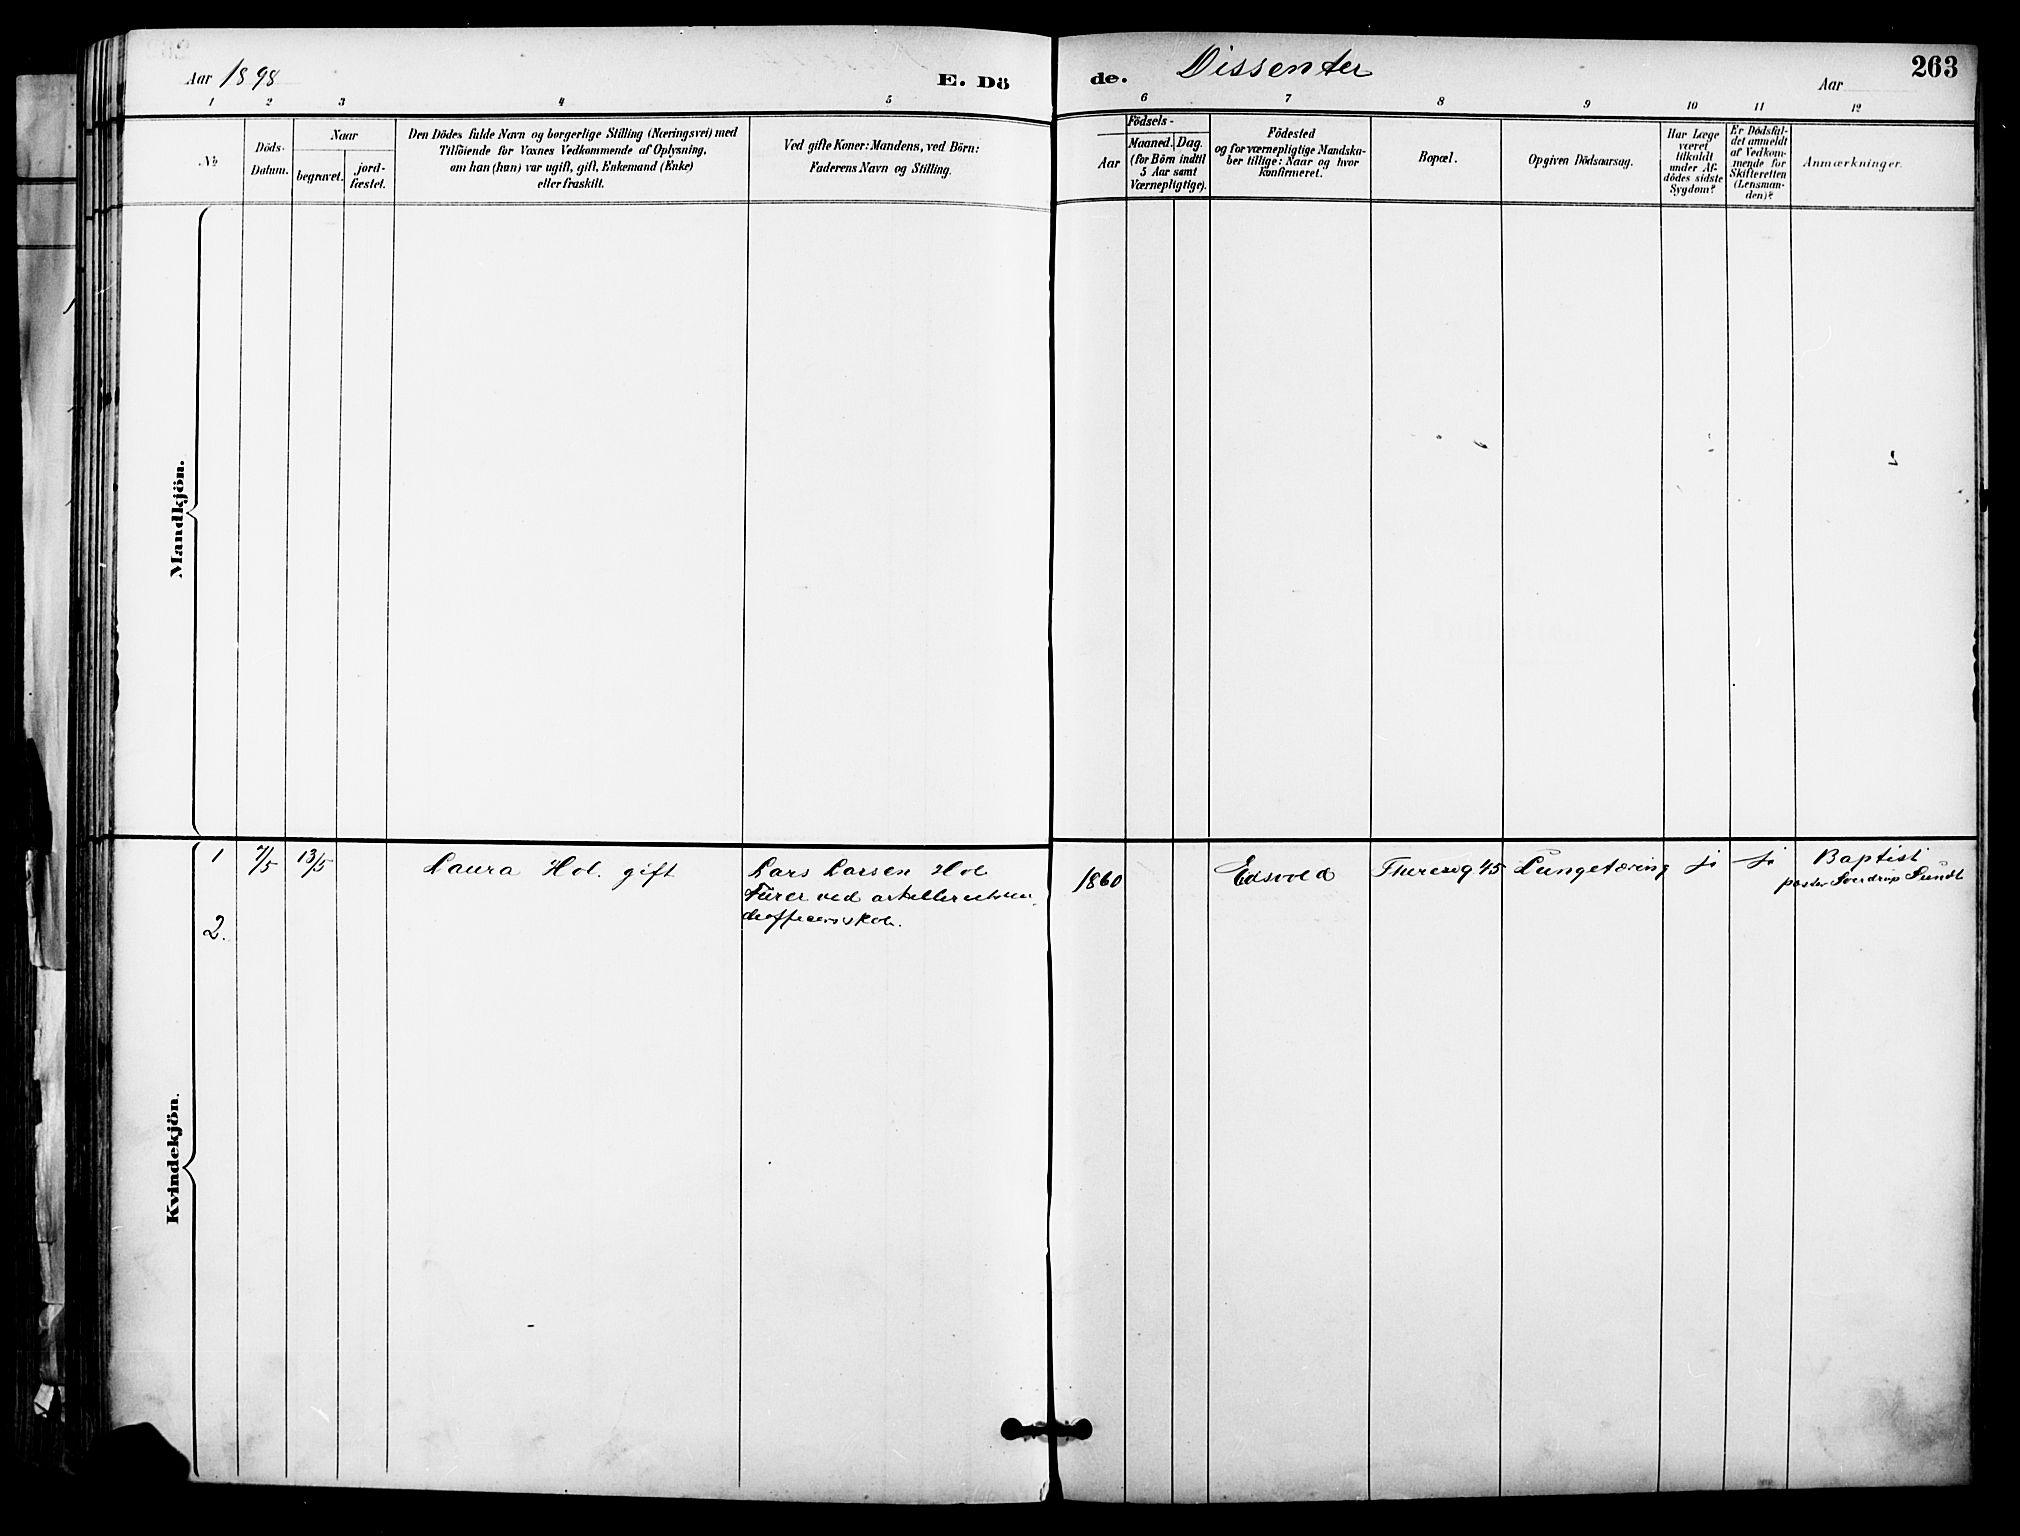 Aar 1898
E. Dö
de.
Dissenter
Aar
263
1 2 3 4 5
6 7 8 9 10 11 12
№
Döds-
Datum.
Naar
begravet.
jord-
fæstet.
Den Dödes fulde Navn og borgerlige Stilling (Næringsvei) med
Tilföiende for Voxnes Vedkommende af Oplysning,
om han (hun) var ugift, gift, Enkemand (Enke)
eller fraskilt.
Ved gifte Koner: Mandens, ved Börn:
Faderens Navn og Stilling.
Födsels-
Aar
Maaned. Dag.
(for Börn indtil
5 Aar samt
Værnepligtige).
Födested
og for værnepligtige Mandska-
ber tillige: Naar og hvor
konfirmeret.
Bopæl.
Opgiven Dödsaarsag.
Har Læge
været
tilkaldt
under Af-
dödes sidste
Sygdom?
Er Dödsfal-
det anmeldt
af Vedkom-
mende for
Skifteretten
(Lensman-
den)?
Anmærkninger.
Mandkjön.
Kvindekjön.
1 7/5 13/5 Laura Hol. gift
Lars Larsen Hol
Furer ved
1860 Edsvold Thereseg 45 Lungetæring ja ja Baptist
pastor Sverdrup Sundt
2.